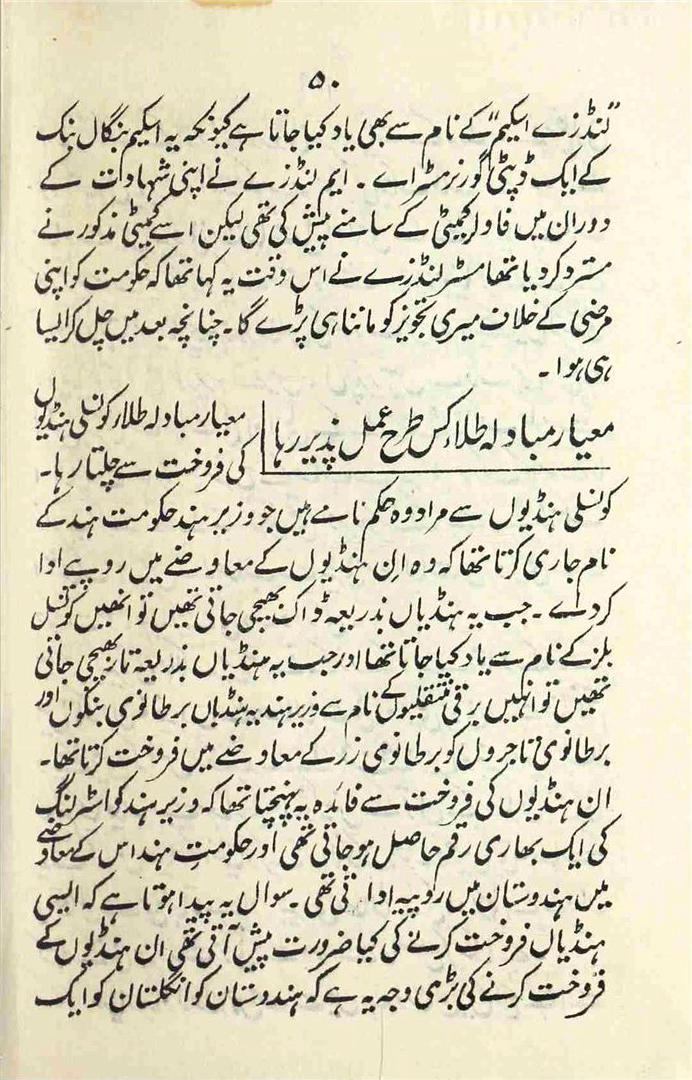 ۵۰
"لنڈزے اسکیم" کے نام سے بھی یاد کیا جاتا ہے کیونکہ یہ اسکیم بنگال بنک
کے ایک ڈپٹی گورنر مسٹر اے ۔ ایم لنڈزے نے اپنی شہادت کے
دوران میں فاولر کمیٹی کے سامنے پیش کی تھی لیکن اسے کمیٹی مذکور نے
مسترد کر دیا تھا مسٹر لنڈزے نے اس وقت یہ کہا تھا کہ حکومت کو اپنی
مرضی کے خلاف میری تجویز کو ماننا ہی پڑے گا ۔ چنانچہ بعد میں چل کر ایسا
ہی ہوا ۔
معیار مبادلہ طلاء کس طرح عمل پذیر رہا
معیار مبادلہ طلاء کونسلی ہنڈیوں
کی فروخت سے چلتا رہا ۔
کونسلی ہنڈیوں سے مراد وہ حکم نامے ہیں جو وزیر ہند حکومت ہند کے
نام جاری کرتا تھا کہ وہ اِن ہنڈیوں کے معاوضے میں روپے ادا
کر دے ۔ جب یہ ہنڈیاں بذریعہ ڈاک بھیجی جاتی تھیں تو انھیں کونسل
بلز کے نام سے یاد کیا جاتا تھا اور جب یہ ہنڈیاں بذریعۂ تار بھیجی جاتی
تھیں تو انہیں برقی منتقلیوں کے نام سے وزیر ہند یہ ہنڈیاں برطانوی بنکوں اور
برطانوی تاجروں کو برطانوی زر کے معاوضے میں فروخت کرتا تھا ۔
ان ہنڈیوں کی فروخت سے فائدہ یہ پہنچتا تھا کہ وزیر ہند کو اسٹرلنگ
کی ایک بھاری رقم حاصل ہو جاتی تھی اور حکومتِ ہند اس کے معاوضے
میں ہندوستان میں روپیہ ادا تی تھی ۔ سوال یہ پیدا ہوتا ہے کہ ایسی
ہنڈیاں فروخت کرنے کی کیا ضرورت پیش آتی تھی ان ہنڈیوں کے
فروخت کرنے کی بڑی وجہ یہ ہے کہ ہندوستان کو انگلستان کو ایک